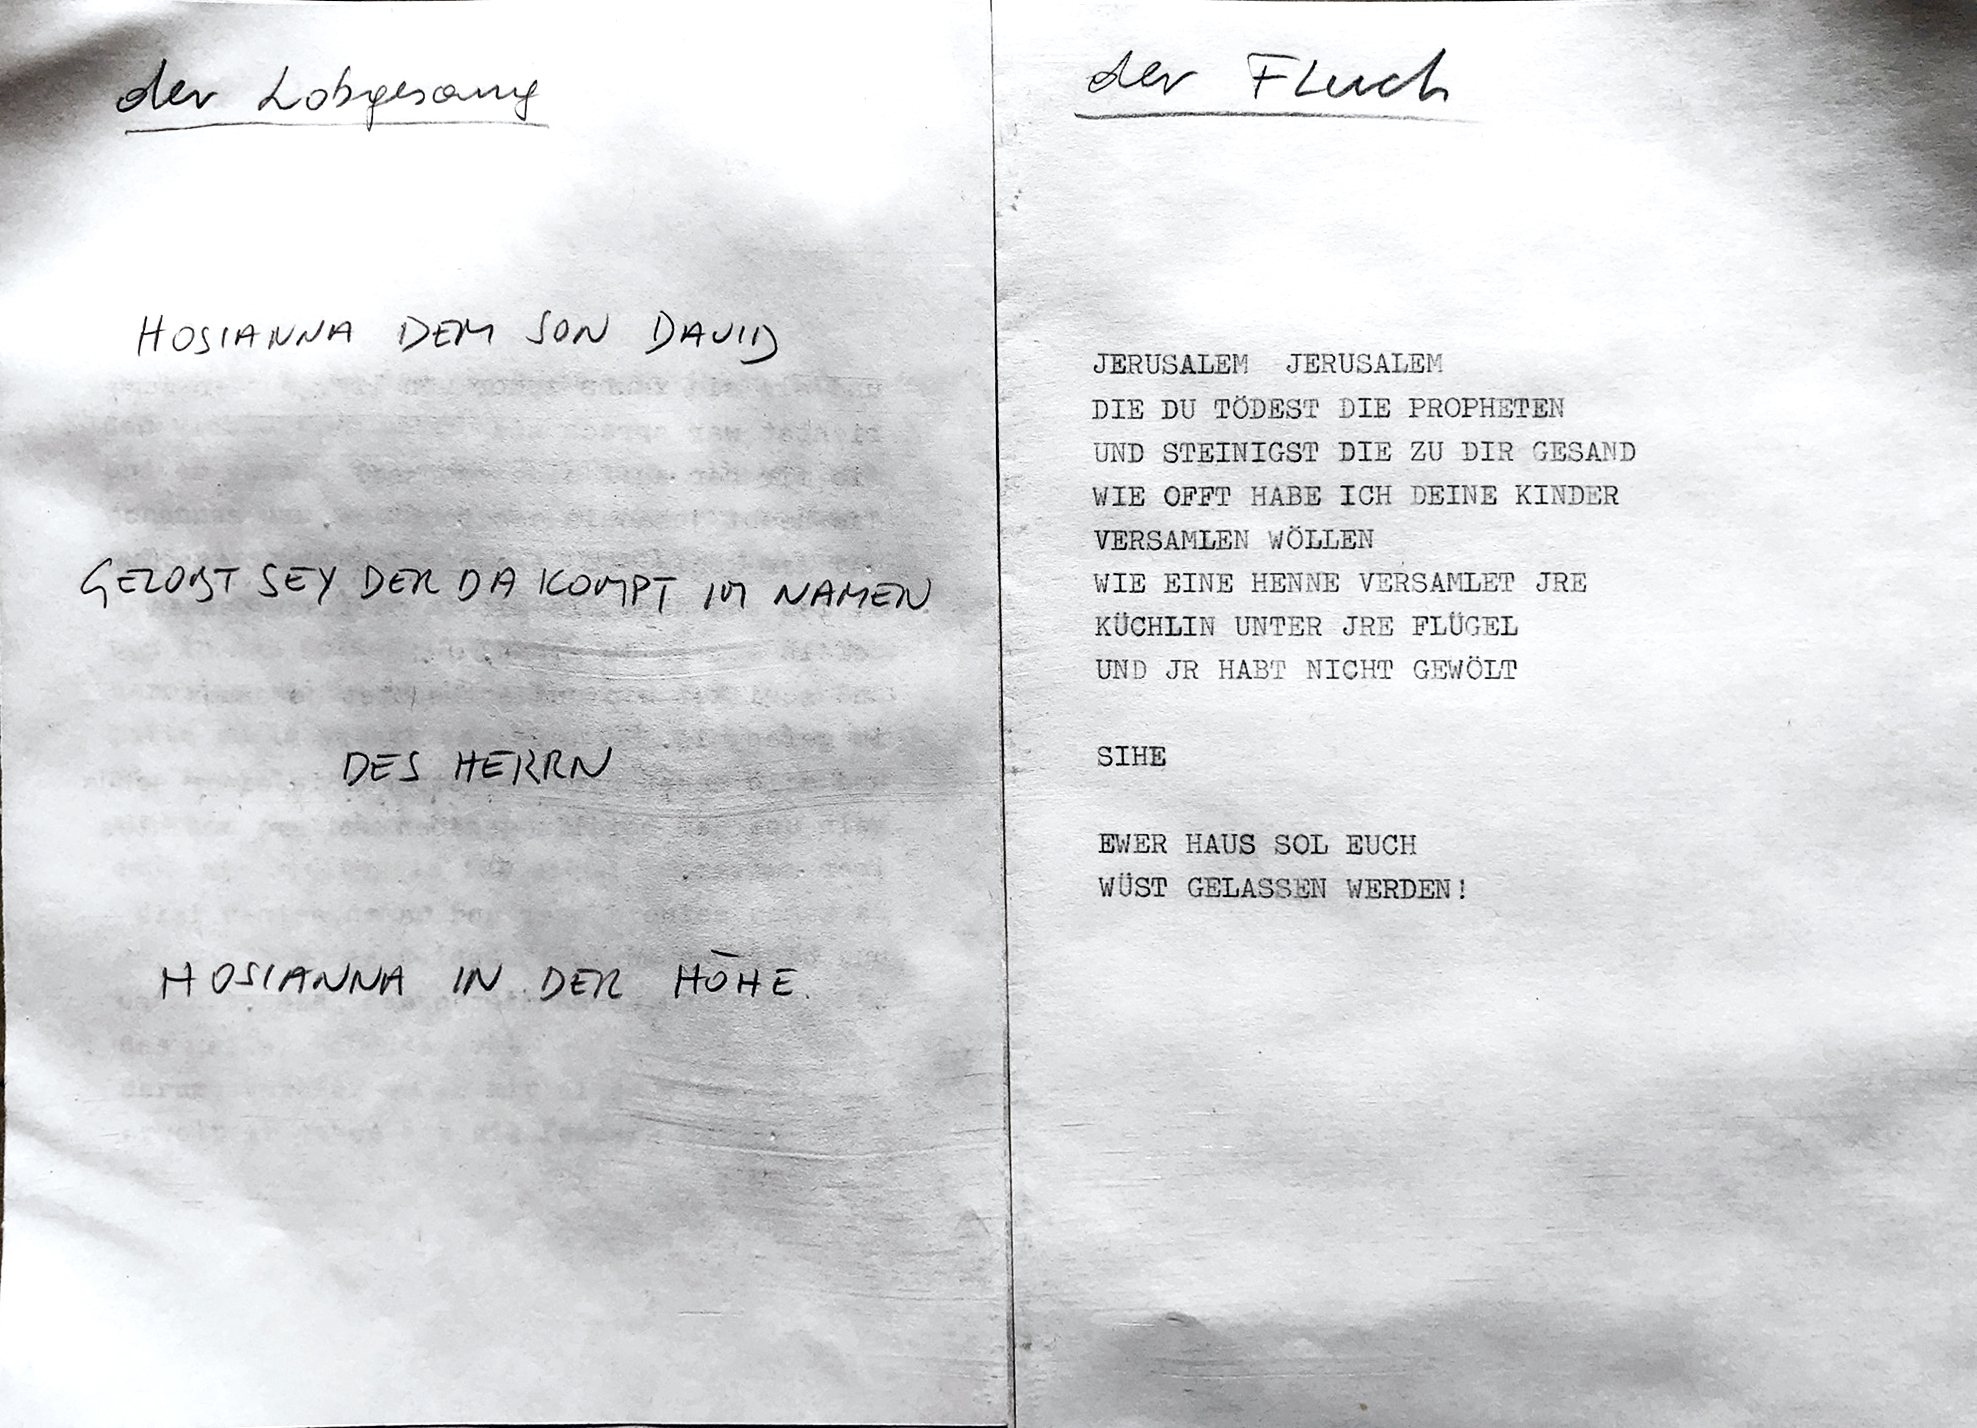 der Lobgesang
HOSIANNA DEM SON DAVID
GELOBT SEY DER DA KOMPT IM NAMEN
DES HERRN
HOSIANNA IN DER HÖHE.
der Fluch
JERUSALEM JERUSALEM
DIE DU TÖDEST DIE PROPHETEN
UND STEINIGST DIE ZU DIR GESAND
WIE OFFT HABE ICH DEINE KINDER
VERSAMLEN WÖLLEN
WIE EINE HENNE VERSAMLET JRE
KÜCHLIN UNTER JRE FLÜGEL
UND JR HABT NICHT GEWÖLT
SIHE
EWER HAUS SOL EUCH
WÜST GELASSEN WERDEN!